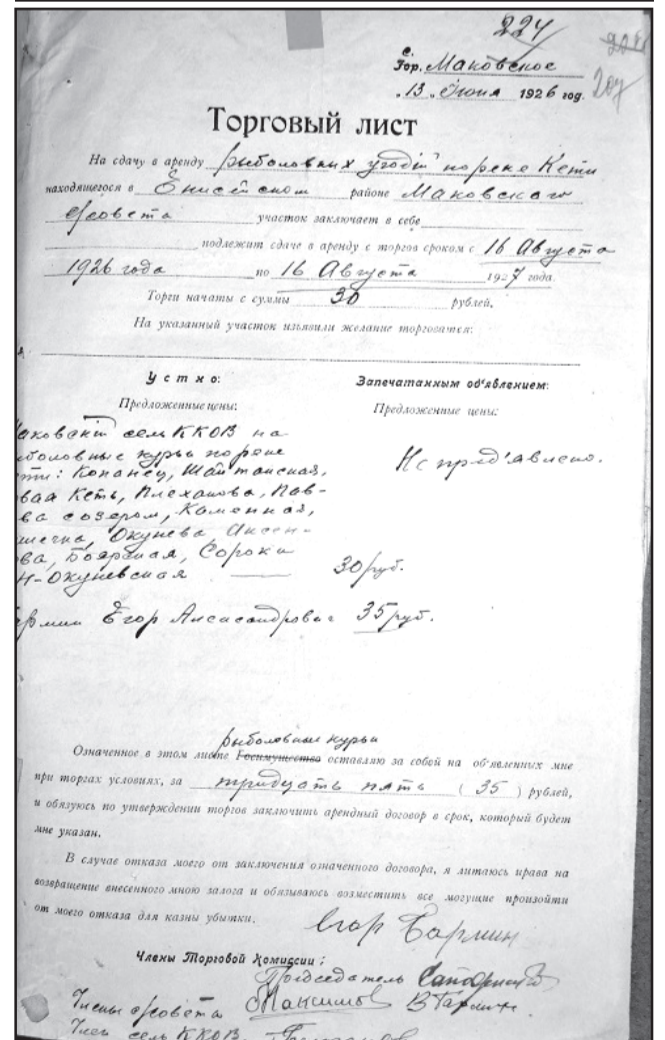 224
207
с.
Гор. Маковское
„13„ Июня 1926 год.
Торговый лист
На сдачу в аренду рыболовных угодій по реке Кети
находящегося в Енисейском районе Маковского
с/совета участок заключает в себе
подлежит сдаче в аренду с торгов сроком с 16 Августа
1926 года по 16 Августа 1927 года.
Торги начаты с суммы 30 рублей.
На указанный участок из'явили желание торговатся:
Устно: Запечатанным об'явлением:
Предложенные цены: Предложенные цены:
аковскій сель ККОВ на
боловные курьи по реке
ти: Копанец, Шайтанская, Не пред'явлено.
вая Кеть, Плеханова, Пав-
ва с озером, Каменная,
Окунева Аксен-
ва, Боярская, Сороки
Н-Окуневская — 30 руб.
армин Егор Александрович 35 руб.
рыболовные курьи
Означенное в этом листе Госимущество оставляю за собой на об'явленных мне
при торгах условиях, за тридцать пять (35) рублей,
и обязуюсь по утверждении торгов заключить арендный договор в срок, который будет
мне указан.
В случае отказа моего от заключения означенного договора, я литаюсь права на
возвращение внесенного мною залога и обязываюсь возместить все могущие произойти
от моего отказа для казны убытки. Егор Бармин
Члены Торговой Комиссии:
Председатель
Члены с/совета Максимов
Член сель ККОВ